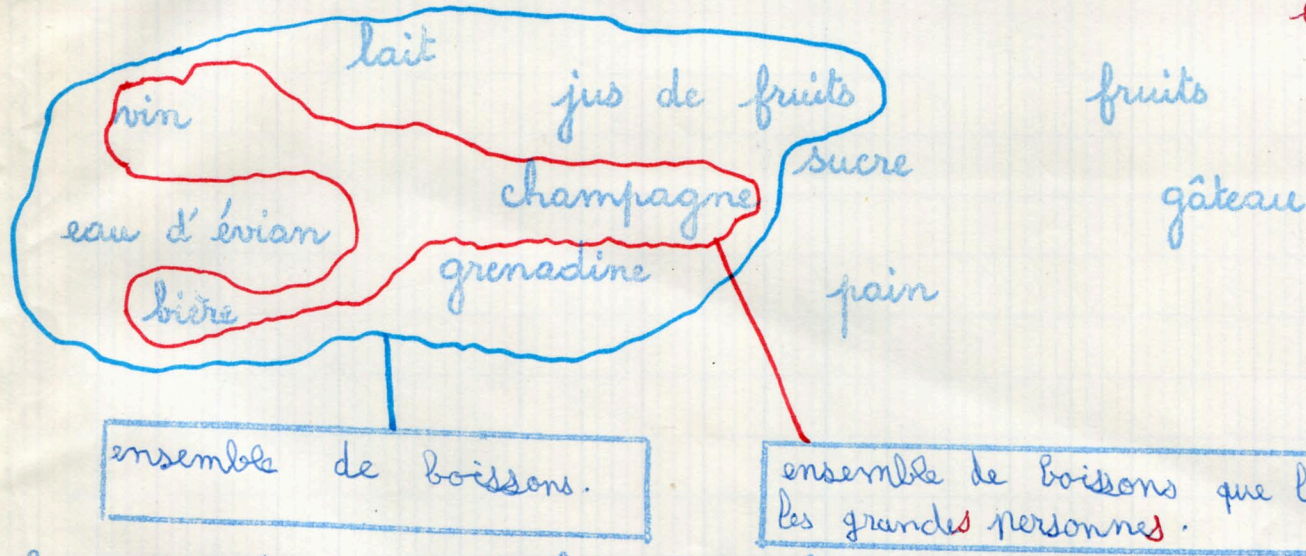 lait
jus de fruits
fruits
vin
sucre
champagne
gâteau
eau d'évian
grenadine
pain
bière
ensemble de boissons.
ensemble de boissons que
les grandes personnes.